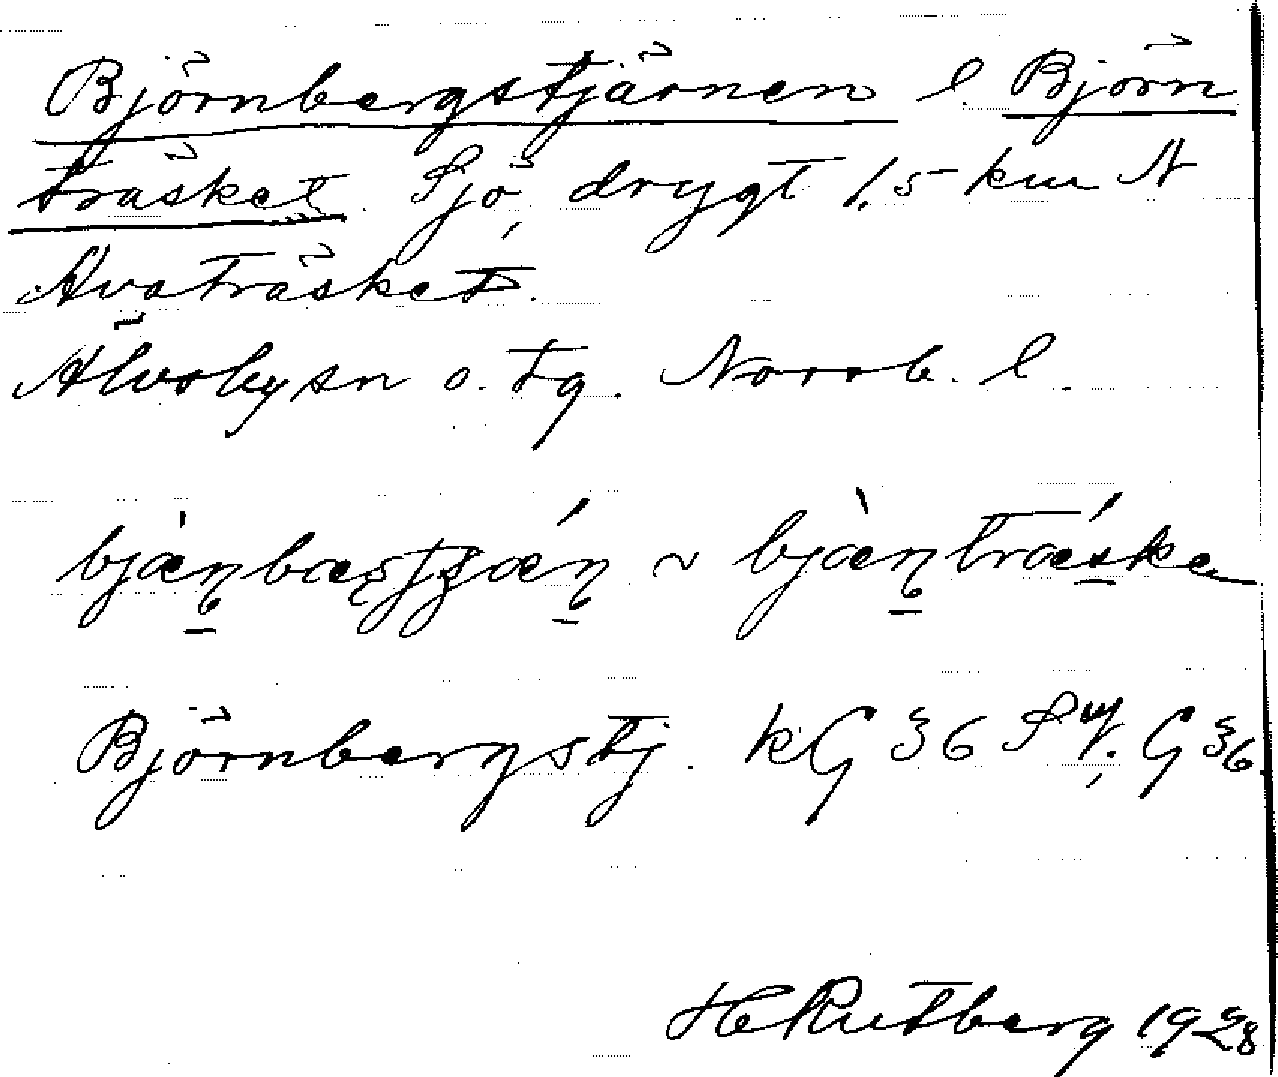 Björnbergstjärnen l. Björn
träsket. Sjö, drygt 1,5 km N
Avaträsket.
Älvsbyn o. tg. Norrb. l.
bjæṇbæṣtjæṇ ~ bjæṇtræske
Björnbergstj. kG 36 SV; G 36.
H Rutberg 1928